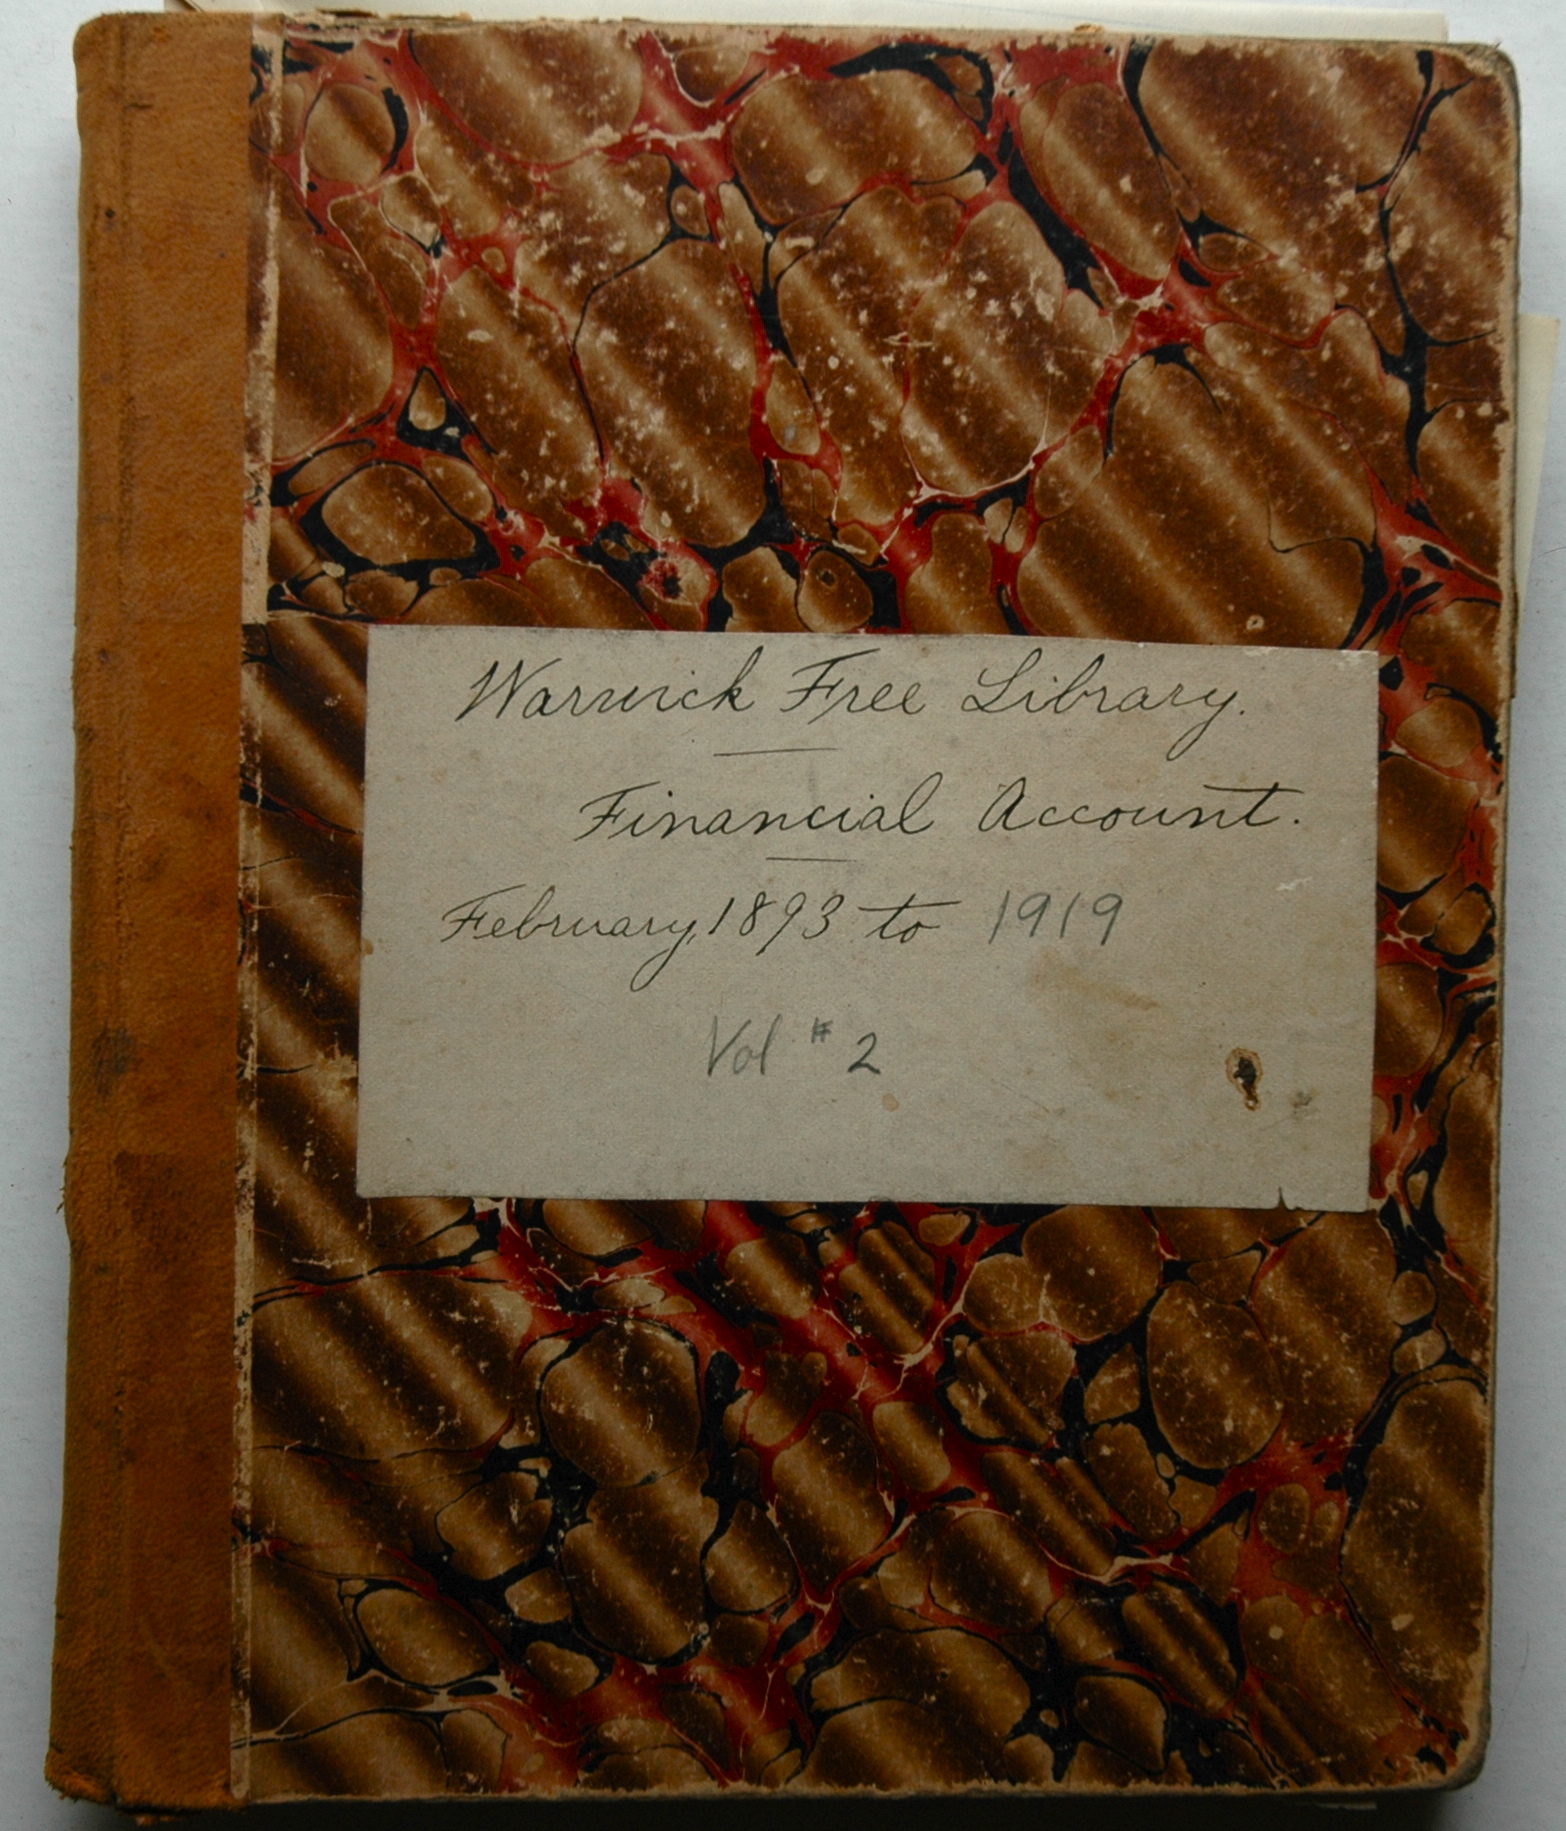 Warwick Free Library.
Financial Account.
February, 1893 to 1919
Vol # 2